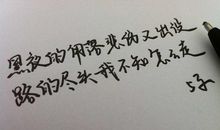 黑夜的角落 悲伤又出没
路的尽头 我不知怎么走